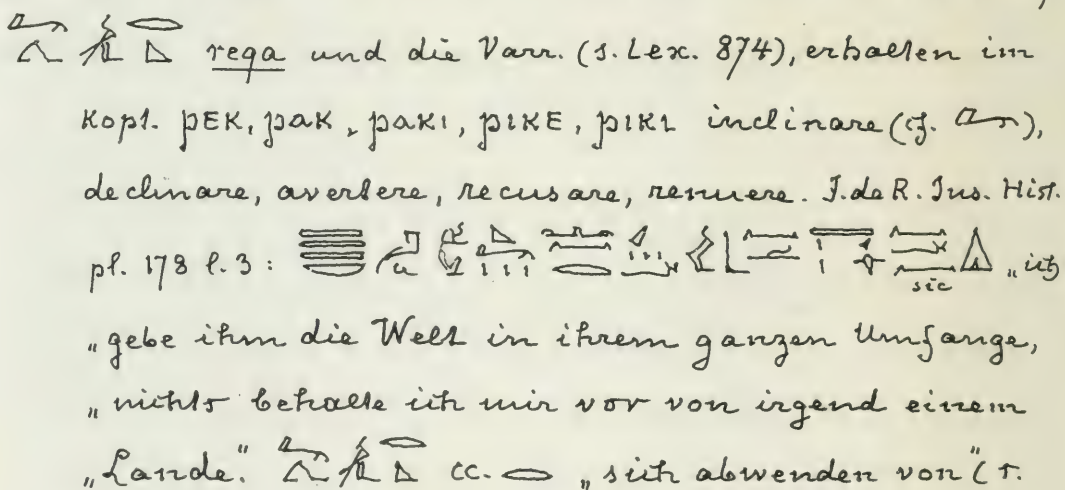 rega und die Varr. (s. Lex. 874), erhalten im
Kopt. ⲣEK, ⲣⲁK, ⲣⲁKI, ⲣIKE, ⲣIKI inclinare (cf. ),
declinare, avertere, recusare, renuere. J. de R. Ins. Hist.
pl. 178 l. 3: sic „ich
„gebe ihm die Welt in ihrem ganzen Umfange,
„nichts behalte ich mir vor von irgend einem
„Lande." cc. „sich abwenden von" (s.